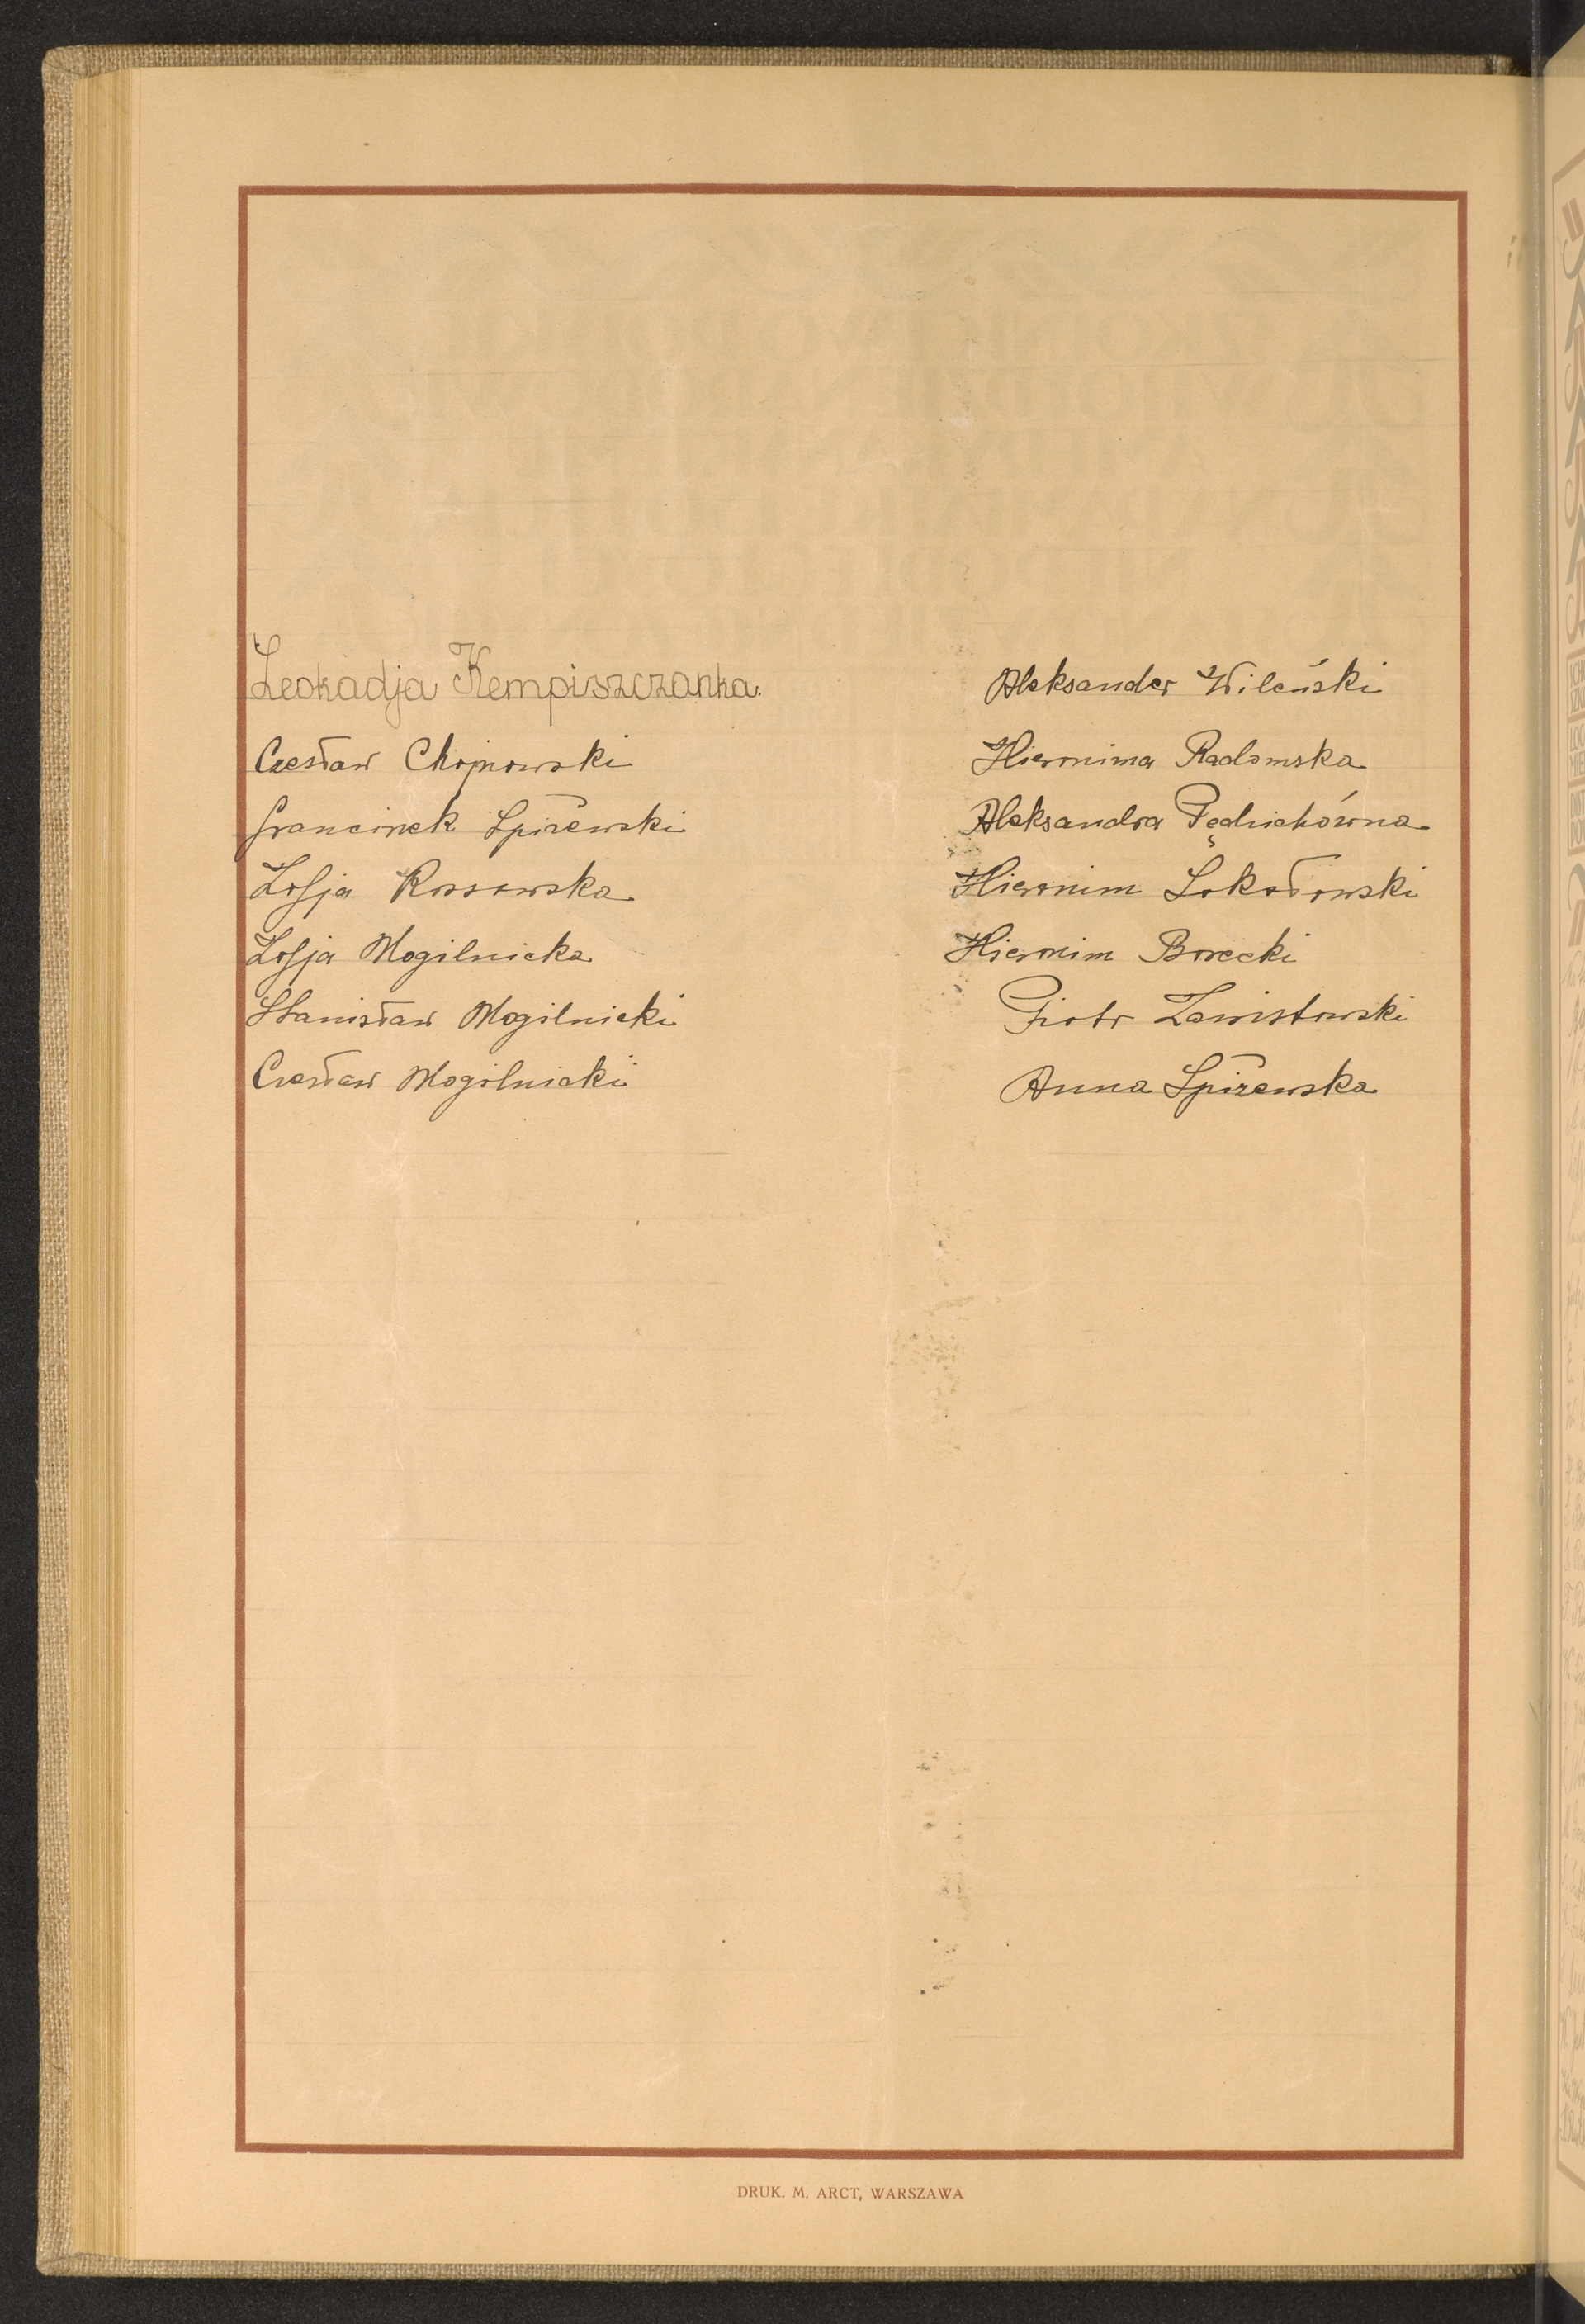 Leokadja Kempiszczanka.
Czesław Chojnowski
Franciszek Spiżewski
Zofja Rossowska
Zofja Mogilnicka
Stanisław Mogilnicki
Czesław Mogilnicki
Aleksander Wileński
Hieronima Radomska
Aleksandra
Hieronim Sokołowski
Hieronim Borecki
Piotr Zawistowski
Anna Spiżewska
DRUK. M. ARCT, WARSZAWA